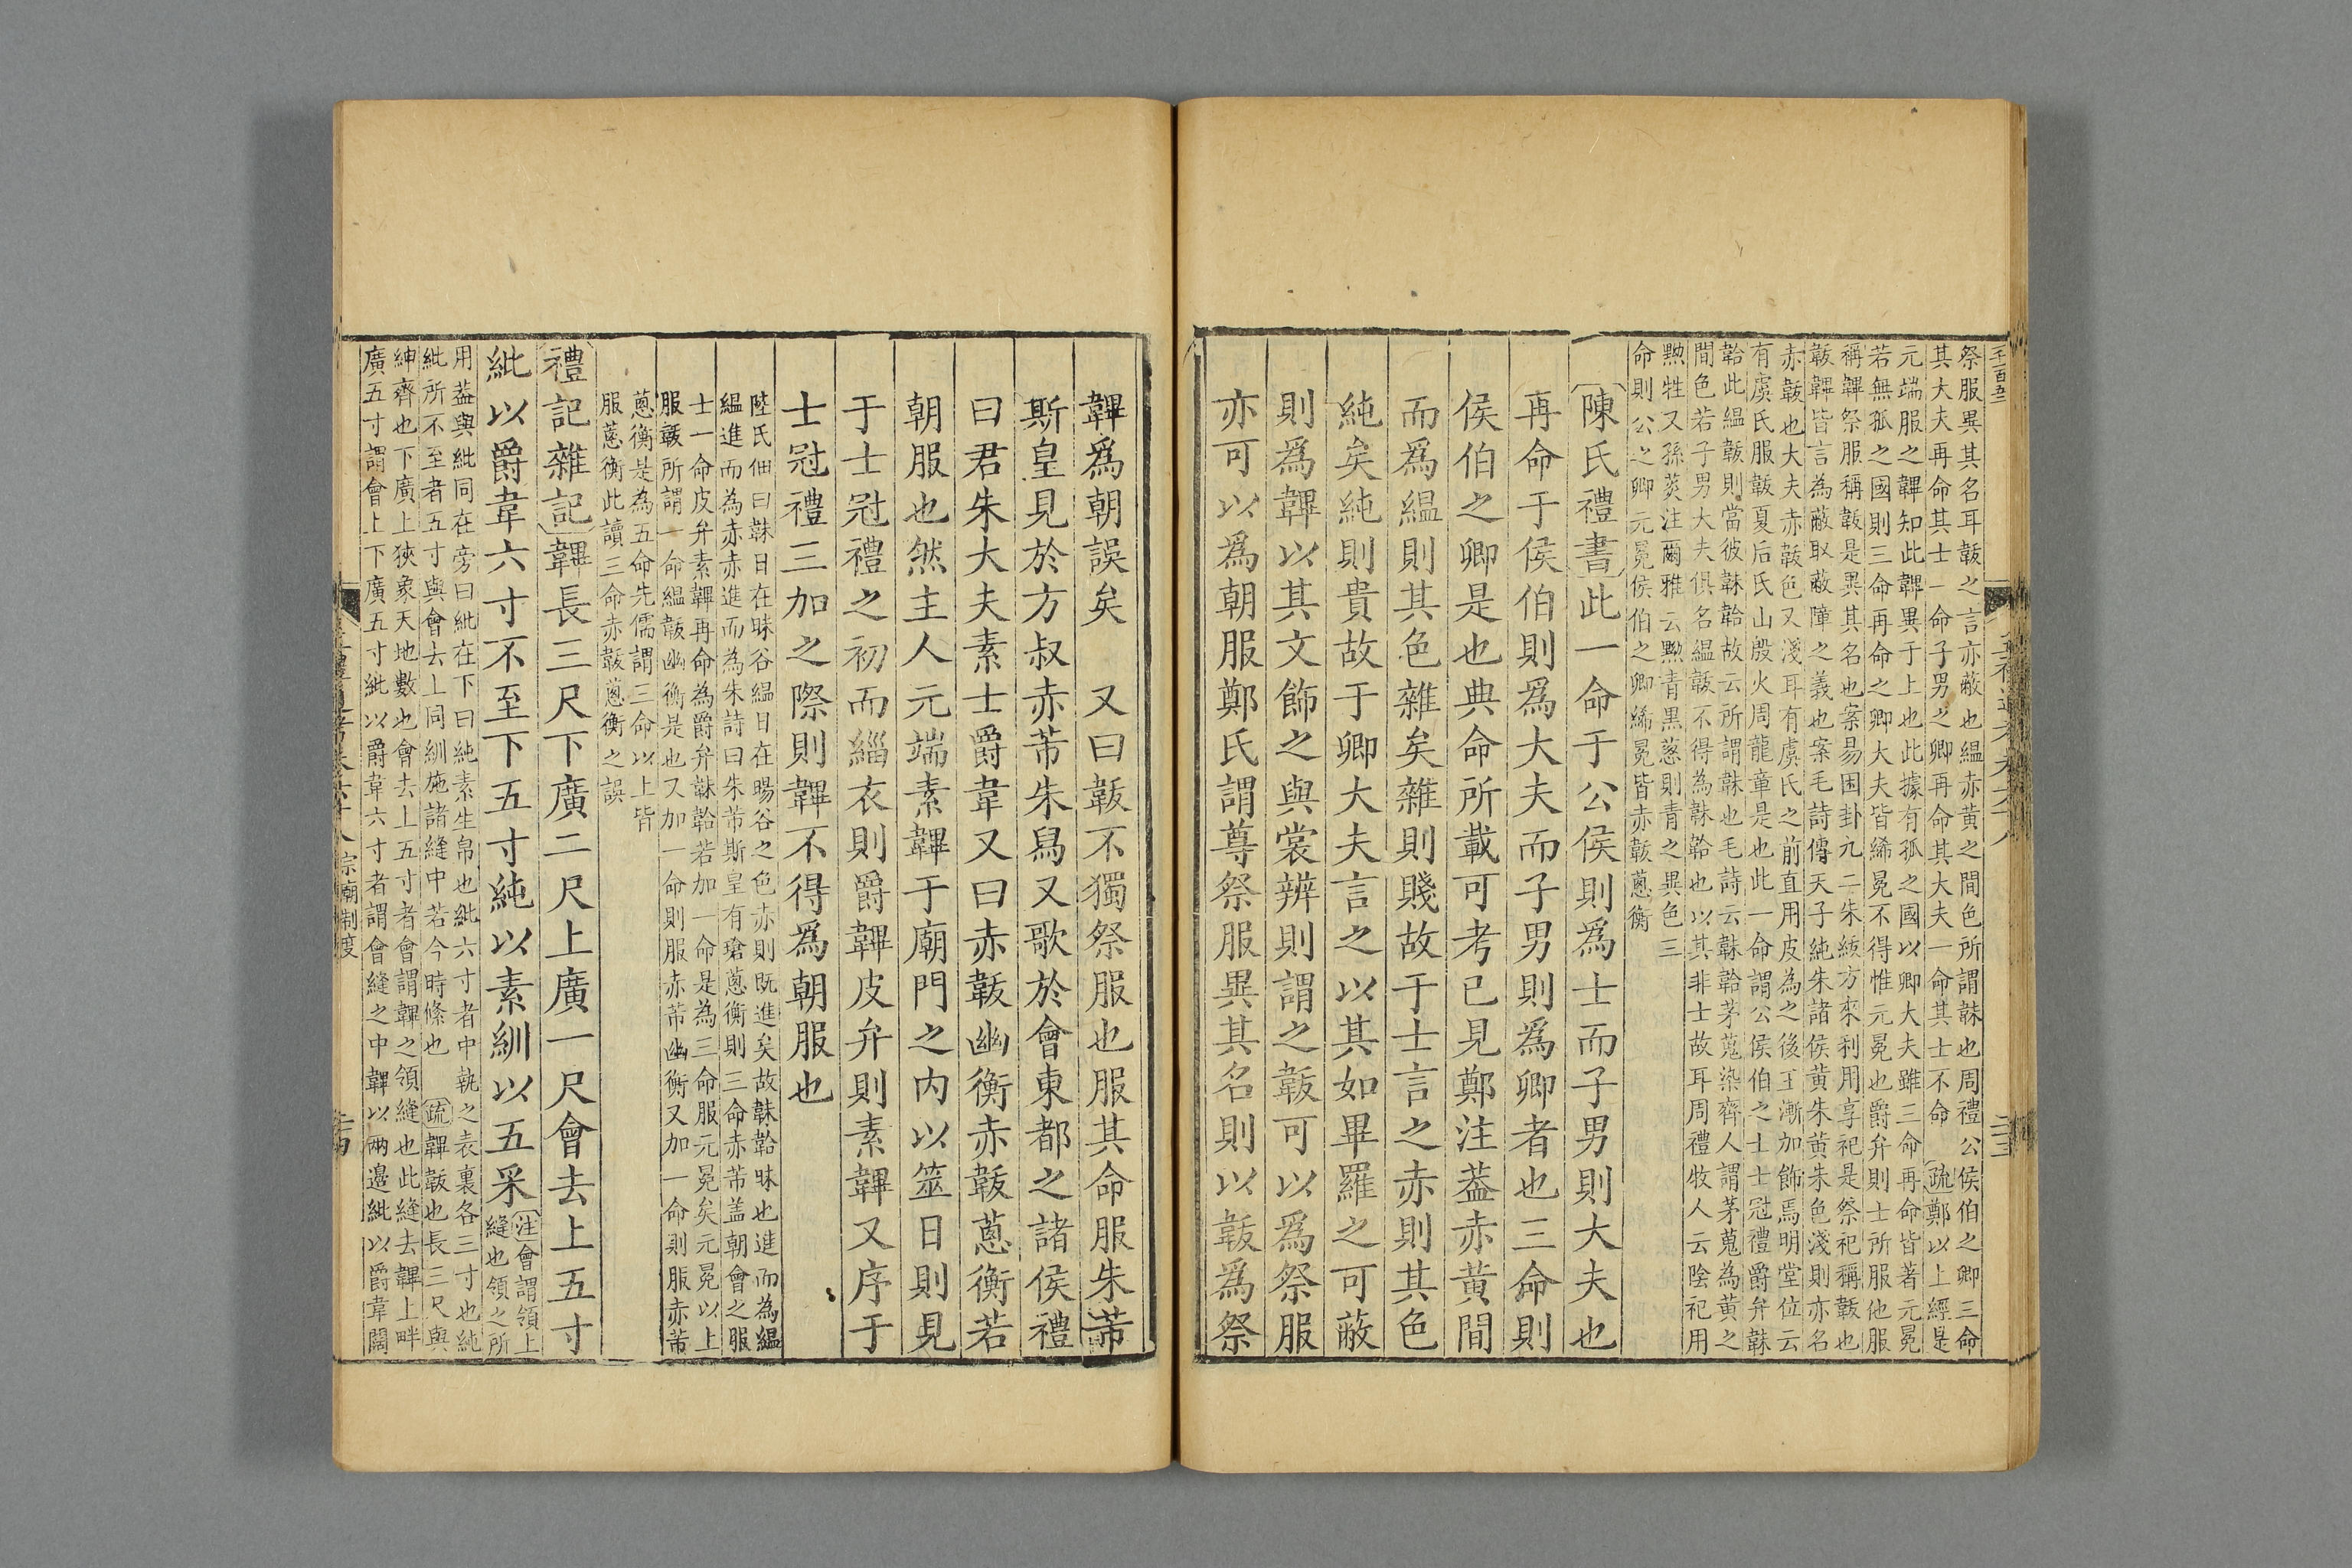 祭服異其名耳韍之言亦蔽也緼赤黃之間色所謂韎也周禮公侯伯之卿三命
其大夫再命其士一命子男之卿再命其大夫一命其士不命 疏鄭以上經是
元端服之韠知此韠異于上也此據有孤之國以卿大夫雖三命再命皆著元冕
若無孤之國則三命再命之卿大夫皆絺冕不得惟元冕也爵弁則士所服他服
稱韠祭服稱韍是異其名也案易困卦九二朱紱方來利用享祀是祭祀稱韍也
韍韠皆言為蔽取蔽障之義也案毛詩傳天子純朱諸侯黃朱黃朱色淺則亦名
赤韍也大夫赤韍色又淺耳有虞氏之前直用皮為之後王漸加飾焉明堂位云
有虞氏服韍夏后氏山殷火周龍章是也此一命謂公侯伯之士士冠禮爵弁韎
韐此緼韍則當彼韎韐故云所謂韎也毛詩云韎韐茅蒐染齊人謂茅蒐為黃之
間色若子男大夫俱名緼韍不得為韎韐也以其非士故耳周禮牧人云陰祀用
黝牲又孫炎注爾雅云黝青黑蔥則青之異色三
命則公之卿元冕侯伯之卿絺冕皆赤韍蔥衡
陳氏禮書此一命于公侯則爲士而子男則大夫也
再命于侯伯則爲大夫而子男則爲卿者也三命則
侯伯之卿是也典命所載可考已見鄭注葢赤黃間
而爲緼則其色雜矣雜則賤故于士言之赤則其色
純矣純則貴故于卿大夫言之以其如畢羅之可蔽
則爲韠以其文飾之與裳辨則謂之韍可以爲祭服
亦可以爲朝服鄭氏謂尊祭服異其名則以韍爲祭
韠爲朝誤矣 又曰韍不獨祭服也服其命服朱芾
斯皇見於方叔赤芾朱舄又歌於會東都之諸侯禮
曰君朱大夫素士爵韋又曰赤韍幽衡赤韍蔥衡若
朝服也然主人元端素韠于廟門之内以筮日則見
于士冠禮之初而緇衣則爵韠皮弁則素韠又序于
士冠禮三加之際則韠不得爲朝服也
陸氏佃曰韎日在昧谷緼日在暘谷之色亦則既進矣故韎韐昧也進而為緼
緼進而為赤赤進而為朱詩曰朱芾斯皇有瑲蔥衡則三命赤芾盖朝會之服
士一命皮弁素韠再命為爵弁韎韐若加一命是為三命服元冕矣元冕以上
服韍所謂一命緼韍幽衡是也又加一命則服赤芾幽衡又加一命則服赤芾
蔥衡是為五命先儒謂三命以上皆
服蔥衡此讀三命赤韍蔥衡之誤
禮記雜記韠長三尺下廣二尺上廣一尺會去上五寸
紕以爵韋六寸不至下五寸純以素紃以五采 注會謂領上
縫也領之所
用葢與紕同在旁曰紕在下曰純素生帛也紕六寸者中執之表裏各三寸也純
紕所不至者五寸與會去上同紃施諸縫中若今時絛也 疏韠韍也長三尺與
紳齊也下廣上狹象天地數也會去上五寸者會謂韠之領縫也此縫去韠上畔
廣五寸謂會上下廣五寸紕以爵韋六寸者謂會縫之中韠以兩邊紕以爵韋闊
宗廟制度